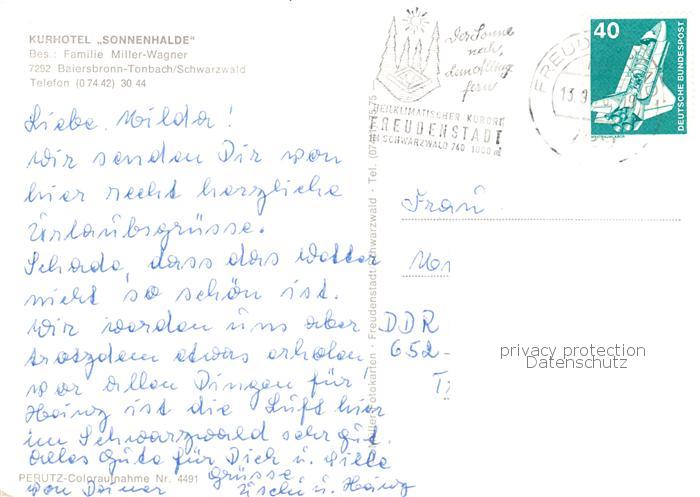 KURHOTEL „SONNENHALDE"
Bes.: Familie Miller-Wagner
7292 Baiersbronn-Tonbach/Schwarzwald
Telefon (0 74 42) 30 44
Liebe Hilda!
wir senden Dir von
hier recht herzliche
Urlaubsgrüsse.
Schade, dass das Wetter
nicht so schön ist.
Wir werden uns aber
trotzdem etwas erholen
vor allen Dingen für
Heinz ist die Luft hier
im Schwarzwald sehr gut.
Alles Gute für Dich u. viele
Grüsse
von Deiner Uschi u. Heinz
PERUTZ-Coloraufnahme Nr. 4491
Der Sonne
nah,
dem Alltag
fern
HEILKLIMATISCHER KURORT
FREUDENSTADT
IM SCHWARZWALD 740 1000 m
FREUD
13.9
40
DEUTSCHE BUNDESPOST
Freudenstadt/Schwarzwald · Tel.
Frau
DDR
652-
privacy protection
Datenschutz